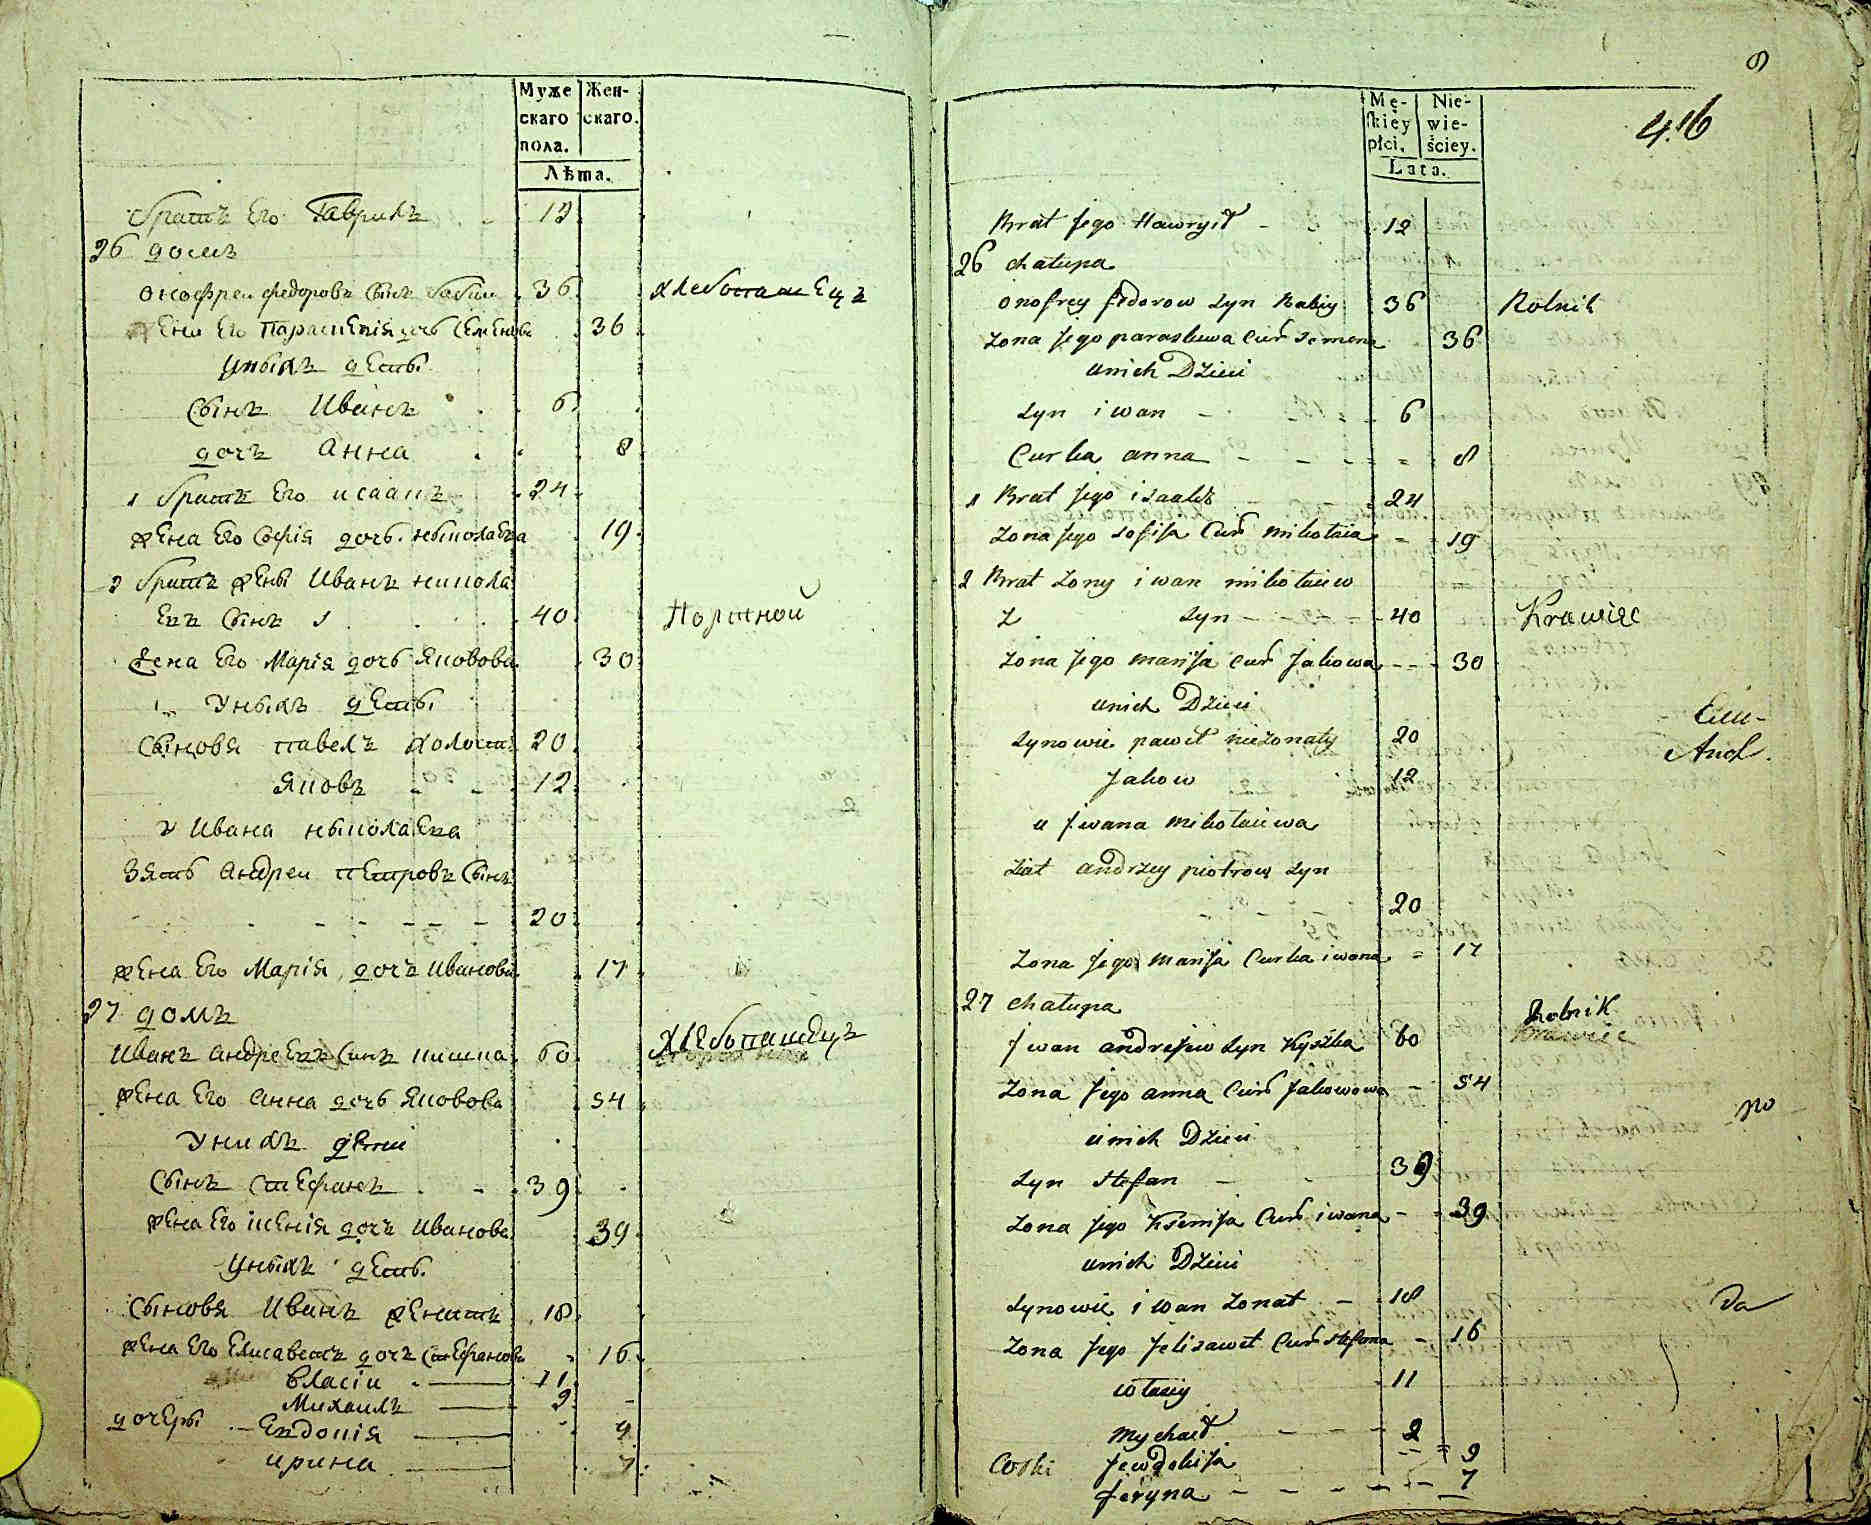 Муже
скаго
пола.
Жен-
скаго.
Лѣта.
братъ Его Гаврилъ 12
26 домъ
Онофреи федоровъ сынъ бабии 36 хлебопашецъ
жена Его Параскевія дочь Семенова 36
у ныхъ деты
сынъ Иванъ 6
дочъ Анна 8
1 братъ Его исаакъ 24
жена Его Софія дочь ныколаева 19
2 братъ жены Иванъ никола
евъ сынъ 40 Портной
жена Его Марія дочь Яковова 30
У ныхъ деты
сыновя павелъ холостъ 20
Яковъ 12
У Ивана ныколаева
зять Андреи петровъ сынъ
20
жена Его Марія дочъ Иванова 17
27 домъ
Иванъ Андреевъ сынъ кишка 60 хлебопашецъ
жена Его Анна дочь Яковова 54
У нихъ дети
сынъ стефанъ 39
жена Его ксенія дочъ Иванова 39
у ныхъ деты
сыновя Иванъ женатъ 18
жена Его Елисаветъ дочъ стефанова 16
власіи 11
Михаилъ 2
дочеры Евдокія 9
ирина 7
Mę-
skiey
płci.
Nie-
wie-
ściey.
Lata.
416
Brat jego Hawrył 12
26 chałupa
onofrey fedorow syn Babiy 36 Rolnik
zona jego paraskewa cur semena 36
unich Dzieci
syn iwan 6
Curka anna 8
1 Brat jego isaak 24
zona jego sofija Cur mikołaia 19
2 Brat zony iwan mikołaiew
syn 40 Krawiec
zona jego marija cur jakowa 30
unich Dzieci
synowie paweł nieżonaty 20
jakow 12
u jwana mikołaiewa
ziat andrzey piotrow syn
20
zona jego marija Curka iwana 17
27 chałupa
Rolnik
jwan andrejew syn Kyszka 60 Krawiec
zona jego anna Cur jakowowa 54
unich Dzieci
syn stefan 39
zona jego Ksenija Cur iwana 39
unich Dzieci
synowie iwan zonat 18
zona jego jelisawet Cur stefana 16
własiy 11
mychaił 2
Corki jewdokija 9
jeryna 7